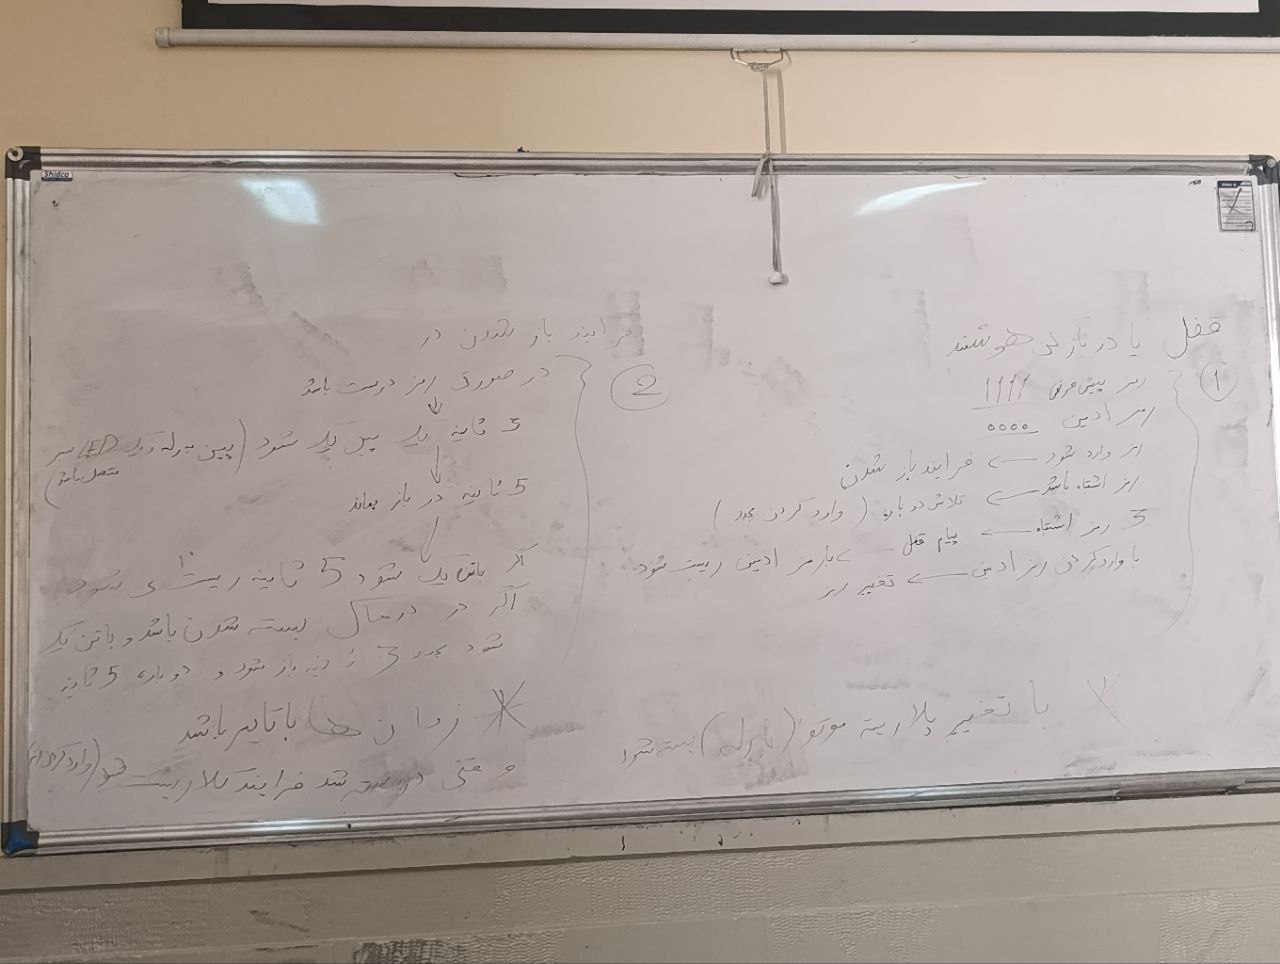 قفل یا در بازکن هوشمند
1
رمز پیش فرض 1111
رمز ادمین 0000
رمز وارد شود ← فرایند باز شدن
رمز اشتباه باشد ← تلاش دوباره (وارد کردن مجدد)
3 رمز اشتباه ← پیام قفل ← با رمز ادمین ریست شود
با وارد کردن رمز ادمین ← تغییر رمز
* با تغییر پلاریته موتور (با رله) بسته شود
فرایند باز شدن در
2
در صورتی رمز درست باشد
3 ثانیه یک پین یک شود (پین به رله و یک LED سبز متصل باشد)
5 ثانیه در باز بماند
اگر باتن یک شود 5 ثانیه ریست شود
اگر در درحال بسته شدن باشد و باتن یک
شود مجدد 3 ثانیه باز شود و دوباره 5 ثانیه
* زمان ها با تایمر باشد
وقتی در بسته شد فرایند کلا ریست شود
Shidco